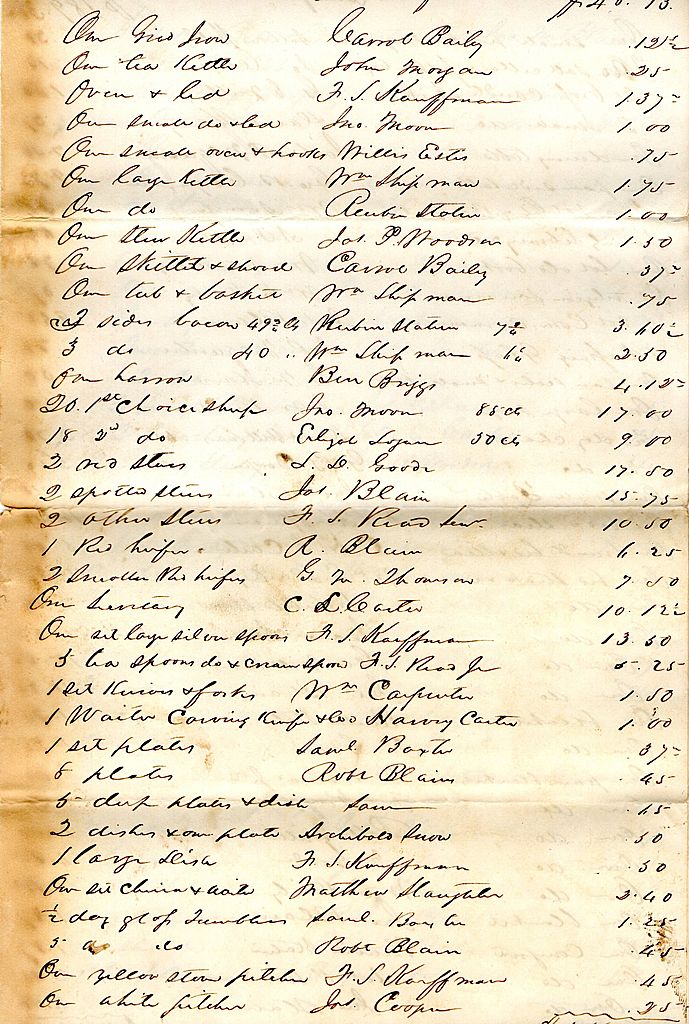 One Grid Iron Carrol Baily .12½
One tea Kettle John Morgan .25
Oven & led F. S. Kauffman 1.37½
One small do & led Jno. Moon 1.00
One small oven & hooks Willis Estis .75
One large Kettle Wm Shipman 1.75
One do Reubin Staten 1.00
One stew Kettle Jas. P. Woodson 1.50
One Skillet & shovel Carrol Baily .37½
One tub & basket Wm Shipman .75
2 sides bacon 49½ lbs Reubin Staten 7¼ 3.60½
3 do 40 " Wm Shipman 6¼ 2.50
One harrow Ben Briggs 4.12½
20. 1st Choice sheep Jno. Moon 85cts 17.00
18 2d do Elijah Logan 50cts 9.00
2 red steers S. D. Goode 17.50
2 spotted steers Jas. Blain 15.75
2 other steers F. S. Read Senr. 10.50
1 Red heifer A. Blain 6.25
2 Smaller Red heifers G. W. Thomson 7.50
One Secretary C. L. Carter 10.12½
One set large silver spoons F. S. Kauffman 13.50
5 tea spoons do & cream spoon F. S. Read Jr 5.25
1 set Knives & forks Wm Carpenter 1.50
1 Waiter Carving Knife &co Harvey Carter 1.00
1 set plates Saml Baxter 37½
8 plates Robt Blain .45
5 deep plates & dish Same .65
2 dishes & one plate Archibald Snow .50
1 large Dish F. S. Kauffman .50
One set china & waiter Matthew Slaughter 2.40
½ doz glass Tumblers Saml. Baxter 1.25
5 do do Robt Blain .45
One yellow stone pitcher F. S. Kauffman .45
One white pitcher Jas. Cooper .25